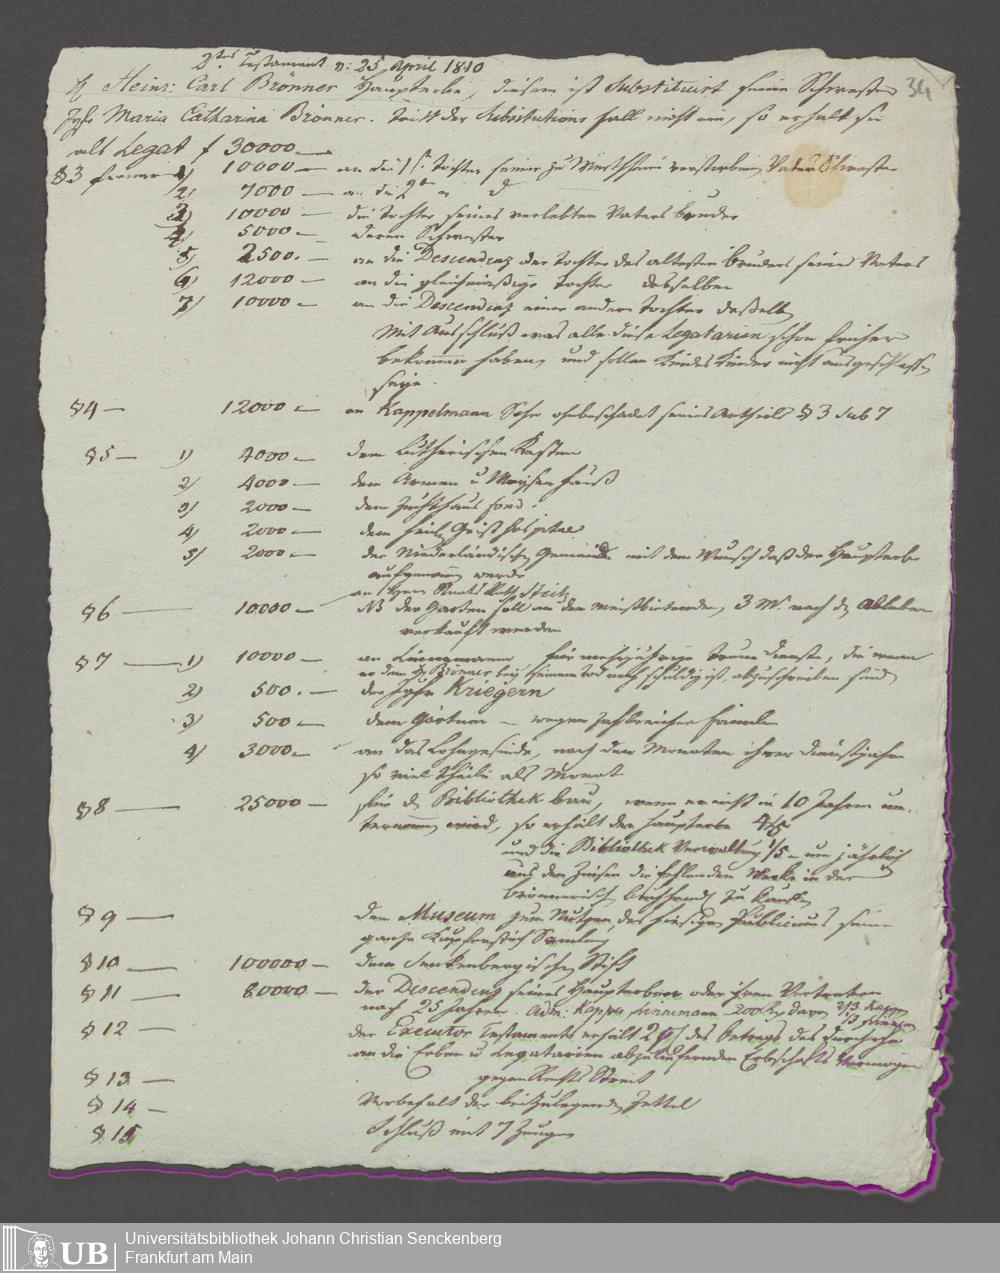 2tes Testament n: 25 April 1810
34
H Heinr: Carl Brönner Haupterbe, diesem ist Substituirt seine Schwester
Jgfr Maria Catharina Brönner. Tritt der Substitutions fall nicht ein, so erhalt sie
als Legat f 30000
§3 ferner 1) 10000 – an die 1te Tochter seiner zu Wertheim verstorbenen Vaters Schwester
2) 7000 – an die 2te
3) 10000 – die Tochter seines verlebten Vaters bruder
4) 5000 – deren Schwester
5) 2500. – an die Descendenz der Tochter des altesten bruders seines Vaters
6) 12000 – an die Tochter desselben
7) 10000 – an die Descendenz einer andern Tochter deßelben
Mit Ausschluß was alle diese Legatarien schon früher
bekommen haben, und sollen Kindes Kinder nicht ausgeschlossen
seyn.
§4 – 12000 – an Kappelmann Sohn ohnbeschadet seines Antheils § 3 sub 7
§5 – 1) 4000 – dem Lutherischen Kasten
2) 4000 – dem Armen u Waysen hauß
3) 2000 – dem Zuchthaus fond.
4) 2000 – dem heil. Geist hospital
5) 2000 – der Niederländischen Gemeinde mit dem Wunsch daß der Haupterbe
aufgenommen werde
an Herrn Staats Rath Steitz
§6 – 10000 – NB der Garten soll an den meistbietenden, 3 M. nach d. Ableben
verkauft werden
§7 – 1) 10000 – an für treue Dienste, die wenn
er dem H Brönner bey seinem Tod noch schuldig ist, abzuschreiben sind
2) 500. – der Jgfr Kriegern
3) 500 – dem Gärtner – wegen zahlreicher Familie
4) 3000 – an das nach den Monaten ihrer dienstjahre
so viel Theile als Monat
§8 – 25000 – für d. Bibliothek bau, wenn er nicht in 10 Jahren un-
ternommen wird, so erhält der Haupterbe 4/5
und die Bibliothek Verwaltung 1/5 – um jährlich
aus den Zinsen die fehlenden Werke in der
brönnerischen buchhandl. zu kaufen
§9 – dem Museum zum Nutzen des hiesigen Publicums seine
ganze Kupferstich Samlung
§10 – 100000 – dem Senkenbergischen Stift
§11 – 80000 – der Descendenz seines Haupterben oder ihren Vertreter
nach 25 Jahren. 2/3 1/3
§12 – der Executor Testaments erhält 2 des betrags des
an die Erben u Legatarien abzuliefernden Erbschafts Vermögen
§13 – gegen Rechts Streit
§14 – Vorbehalt der beizulegenden Zettel
§15 Schluß mit 7 Zeugen
UB
Universitätsbibliothek Johann Christian Senckenberg
Frankfurt am Main